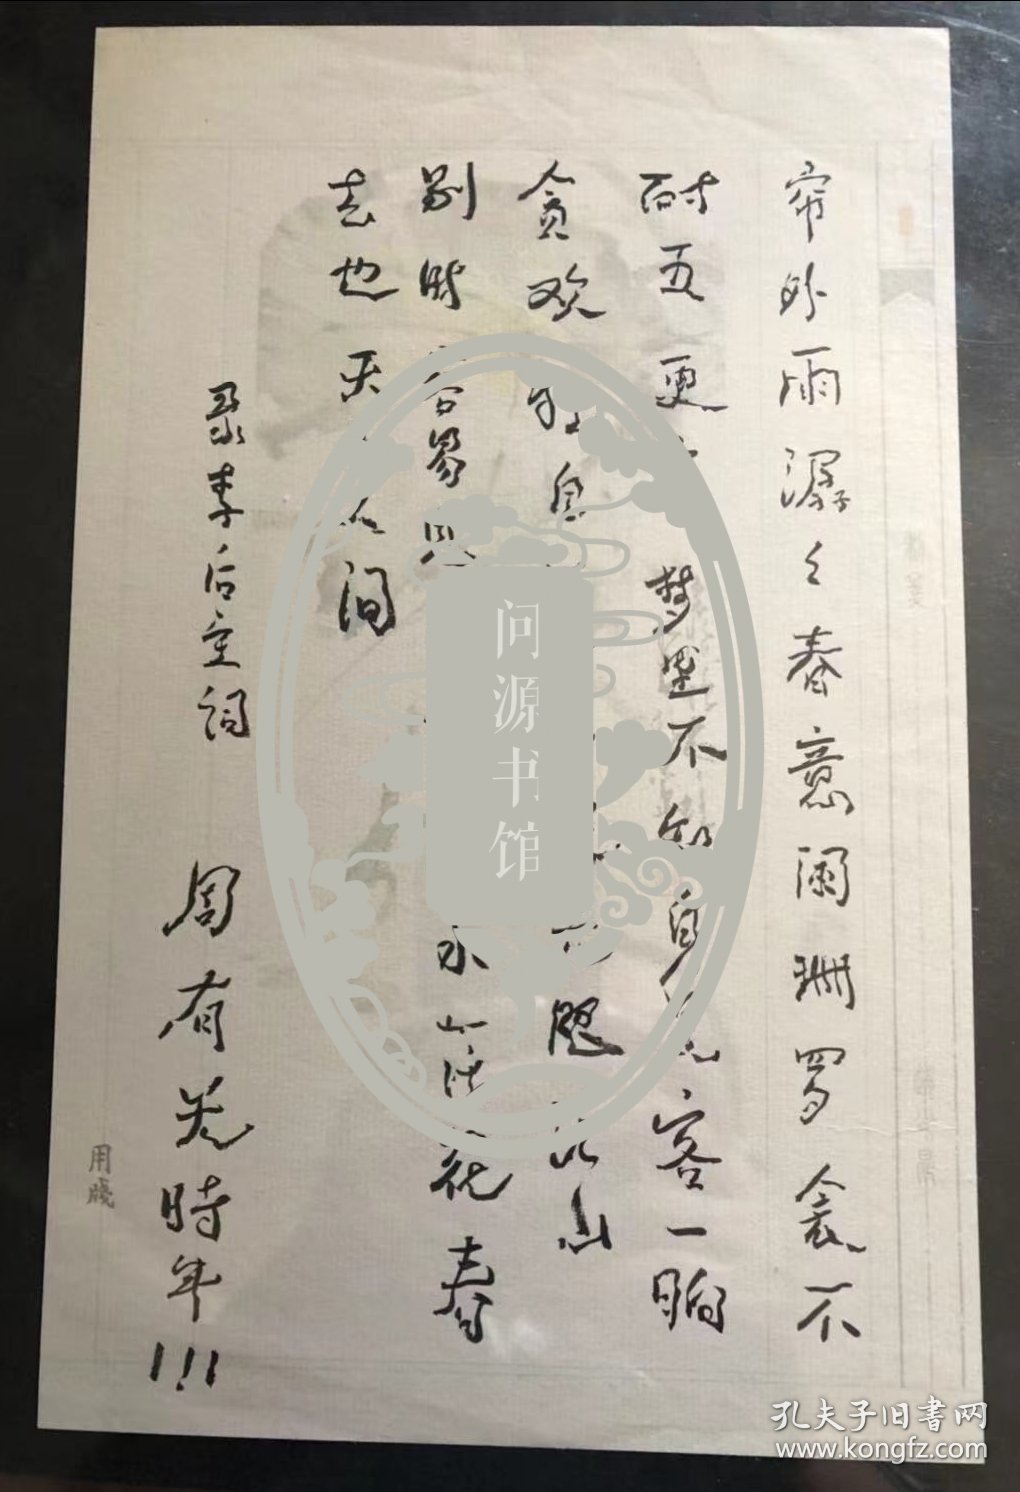 帘外雨潺々春意阑珊罗衾不
耐五更 梦里不知身 客一晌
贪欢 自 山
别时容易见 水 花春
去也天 人间
录李后主词
周有光時年111
用牋
问源书馆
孔夫子旧書网
www.kongfz.com